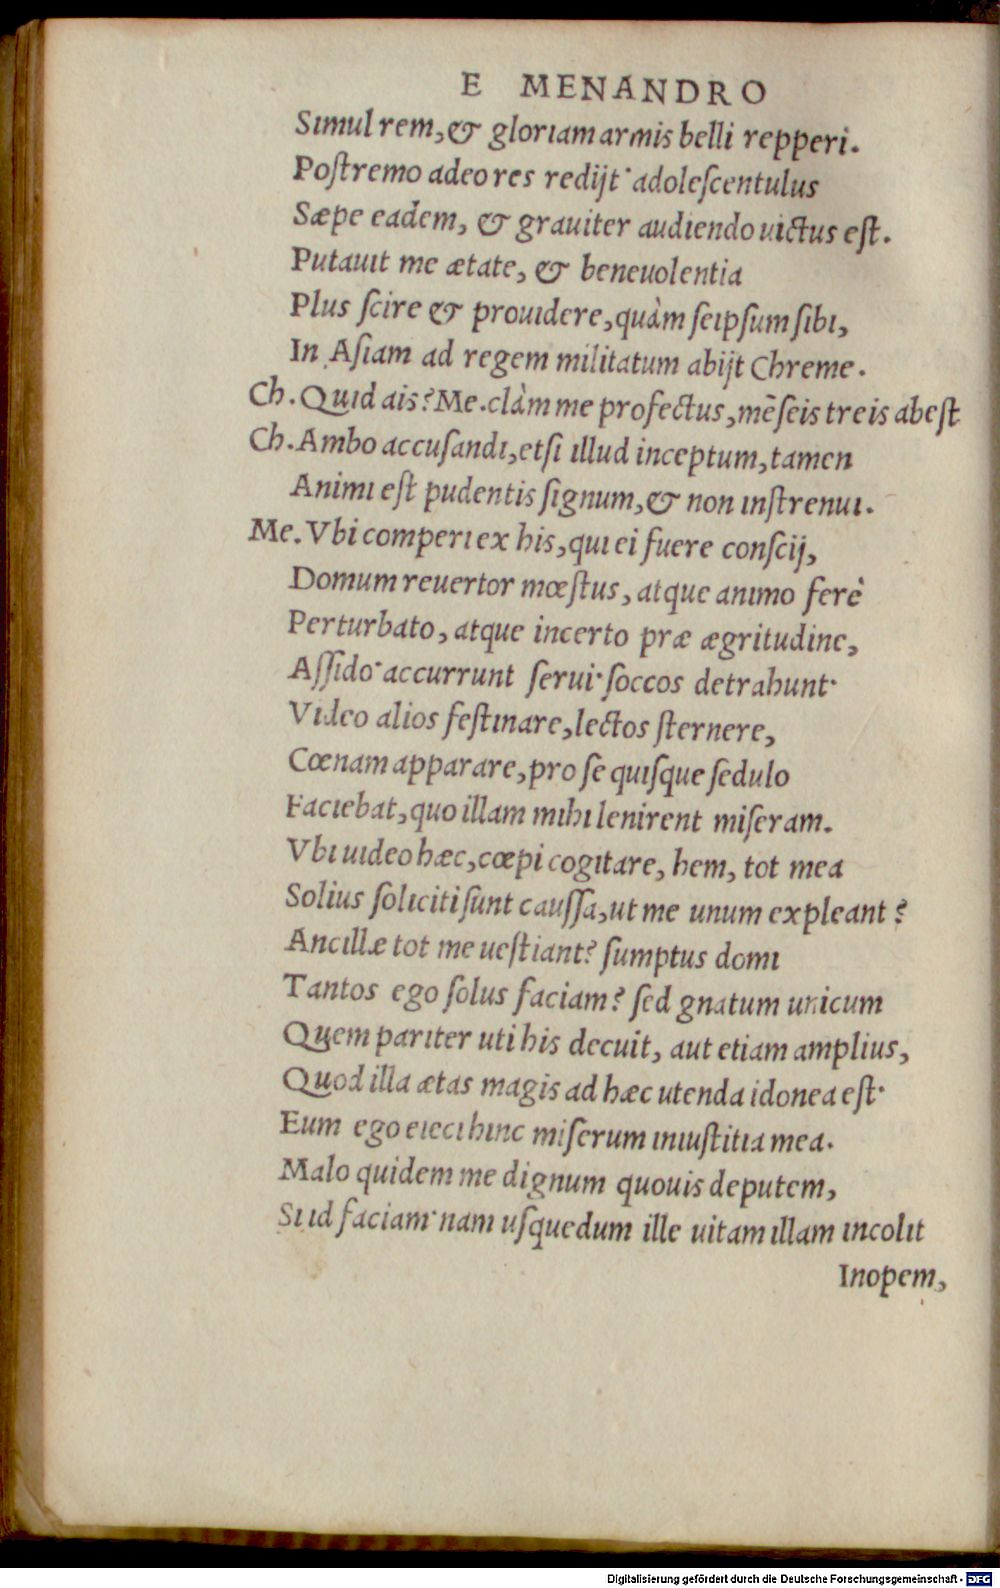 E MENANDRO
Simul rem, & gloriam armis belli repperi.
Poſtremo adeo res redijt· adoleſcentulus
Sæpe eadem, & grauiter audiendo uictus eſt.
Putauit me ætate, & beneuolentia
Plus ſcire & prouidere, quàm ſeipſum ſibi,
In Aſiam ad regem militatum abijt Chreme.
Ch. Quid ais? Me. clàm me profectus, mẽſeis treis abeſt
Ch. Ambo accuſandi, etſi illud inceptum, tamen
Animi eſt pudentis ſignum, & non inſtrenui.
Me. Vbi comperi ex his, qui ei fuere conſcij,
Domum reuertor mœſtus, atque animo ferè
Perturbato, atque incerto præ ægritudine,
Aſſido· accurrunt ſerui· ſoccos detrahunt·
Video alios feſtinare, lectos ſternere,
Cœnam apparare, pro ſe quiſque ſedulo
Faciebat, quo illam mihi lenirent miſeram.
Vbi uideo hæc, cœpi cogitare, hem, tot mea
Solius ſoliciti ſunt cauſſa, ut me unum expleant?
Ancillæ tot me ueſtiant? ſumptus domi
Tantos ego ſolus faciam? ſed gnatum unicum
Quem pariter uti his decuit, aut etiam amplius,
Quod illa ætas magis ad hæc utenda idonea eſt·
Eum ego eieci hinc miſerum iniuſtitia mea.
Malo quidem me dignum quouis deputem,
Si id faciam· nam uſquedum ille uitam illam incolit
Inopem,
Digitalisierung gefördert durch die Deutsche Forschungsgemeinschaft - DFG